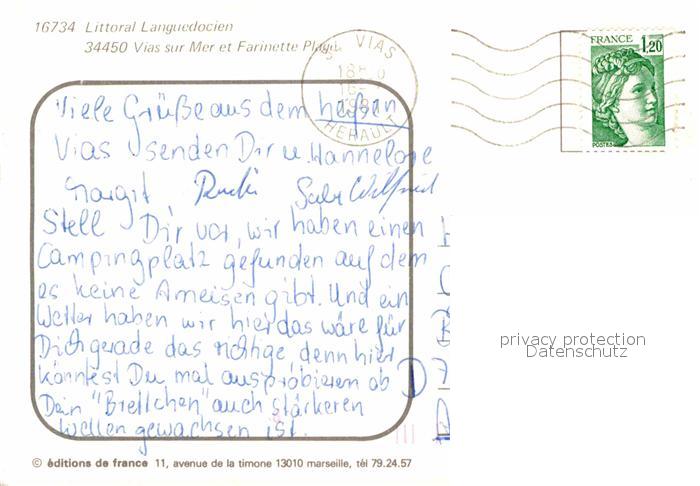 16734 Littoral Languedocien
34450 Vias sur Mer et Farinette Plage
VIAS
HERAULT
FRANCE
1,20
POSTES
Viele Grüße aus dem heißen
Vias senden Dir u. Hannelore
Margit, Rudi
Stell Dir vor, wir haben einen
Campingplatz gefunden auf dem
es keine Ameisen gibt. Und ein
Wetter haben wir hier das wäre für
Dich gerade das richtige, denn hier
könntest Du mal ausprobieren ob
Dein "Brettchen" auch stärkeren
Wellen gewachsen ist.
privacy protection
Datenschutz
© éditions de france 11, avenue de la timone 13010 marseille, tél 79.24.57